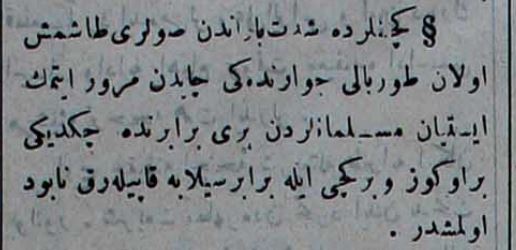 § كچنلرده شدت باراندن صولری طاشمش
اولان طوربالی جوارنده‌كی چایدن مرور ایتمك
ایستیان مسلمانلردن بری برابرنده چكدیكی
براوكوز و بركچی ایله برابر سیلابه قاپیله‌رق نابود
اولمشدر .